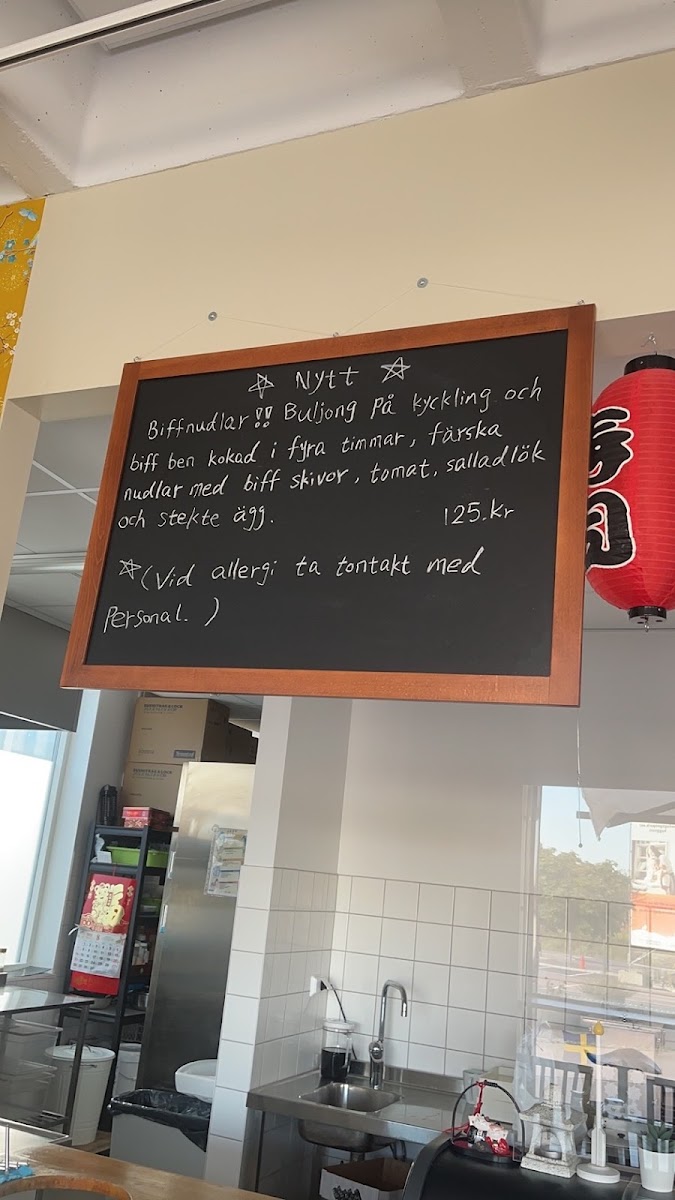 ☆ Nytt ☆
Biffnudlar!! Buljong på kyckling och
biff ben kokad i fyra timmar, färska
nudlar med biff skivor, tomat, salladlök
och stekte ägg. 125.kr
☆(Vid allergi ta tontakt med
Personal. )